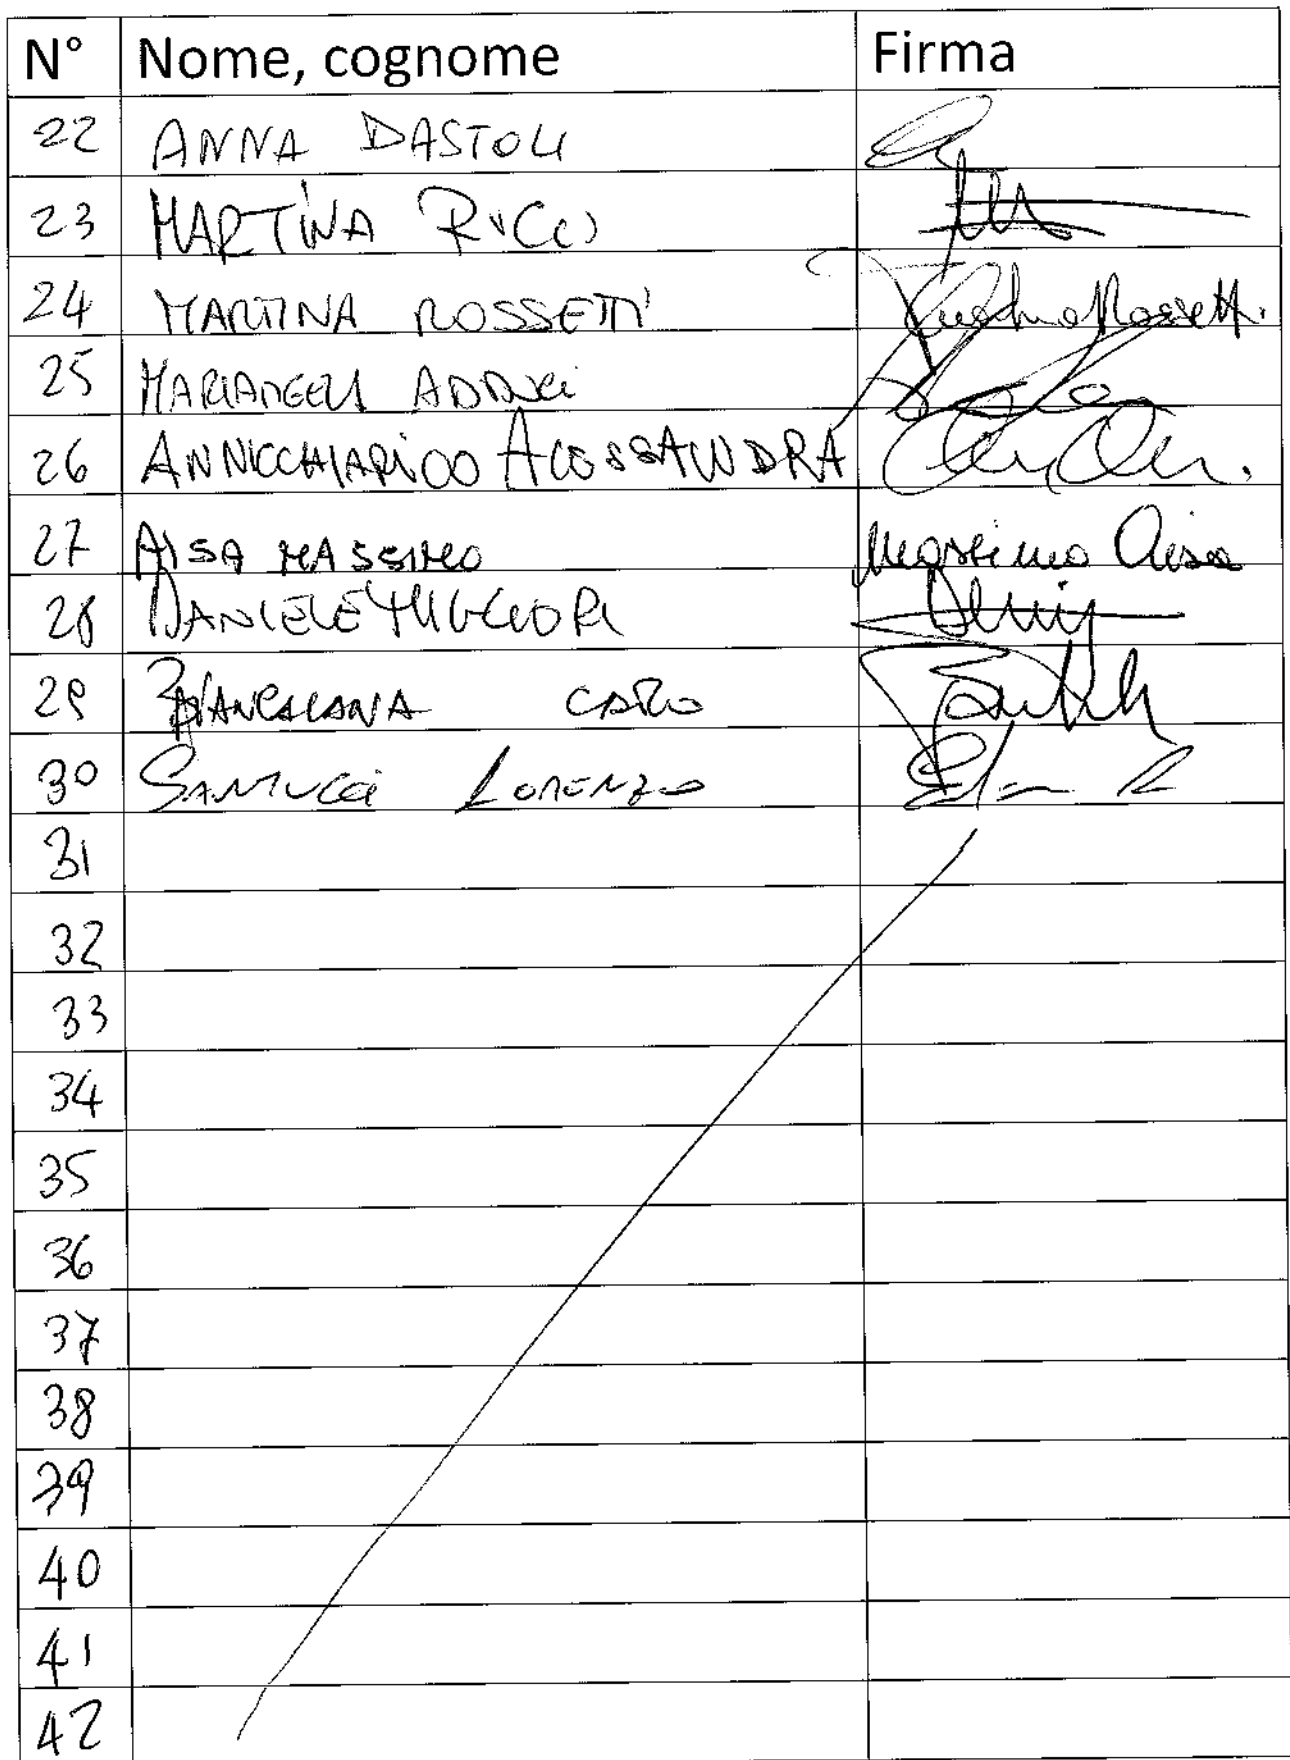 N° Nome, cognome Firma
22 ANNA DASTOLI
23 MARTINA RICCI
24 MARTINA ROSSETTI Martina Rossetti
25 MARIANGELA ADDUCI
26 ANNICCHIARICO ALESSANDRA
27 AISA MASSIMO Massimo Aisa
28 DANIELE MIGLIORI
29 BIANCALANA CARLO
30 SANTUCCI LORENZO
31
32
33
34
35
36
37
38
39
40
41
42